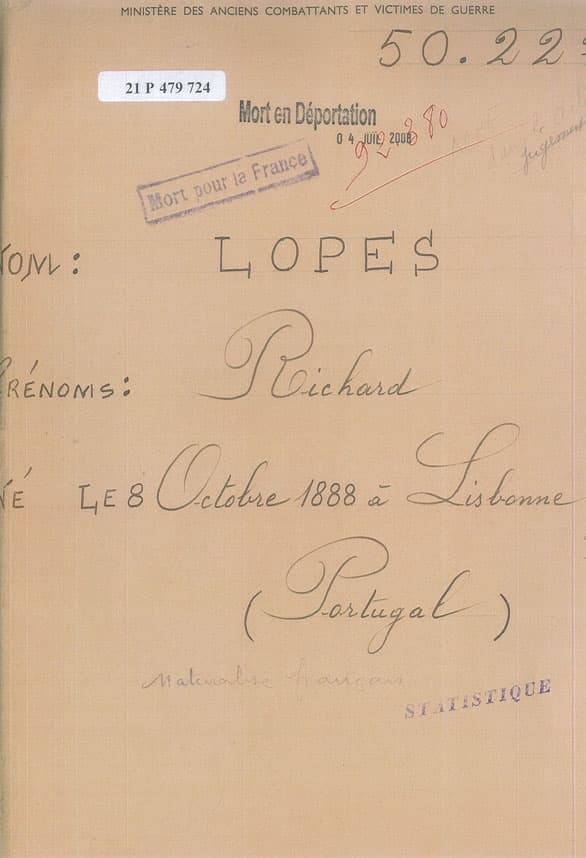 MINISTÈRE DES ANCIENS COMBATTANTS ET VICTIMES DE GUERRE
50.22
21 P 479 724
Mort en Déportation
0 4 JUIL 2008
92 880
jugement
Mort pour la France
NOM: LOPES
PRÉNOMS: Richard
NÉ LE 8 Octobre 1888 à Lisbonne
(Portugal)
Naturalisé français
STATISTIQUE